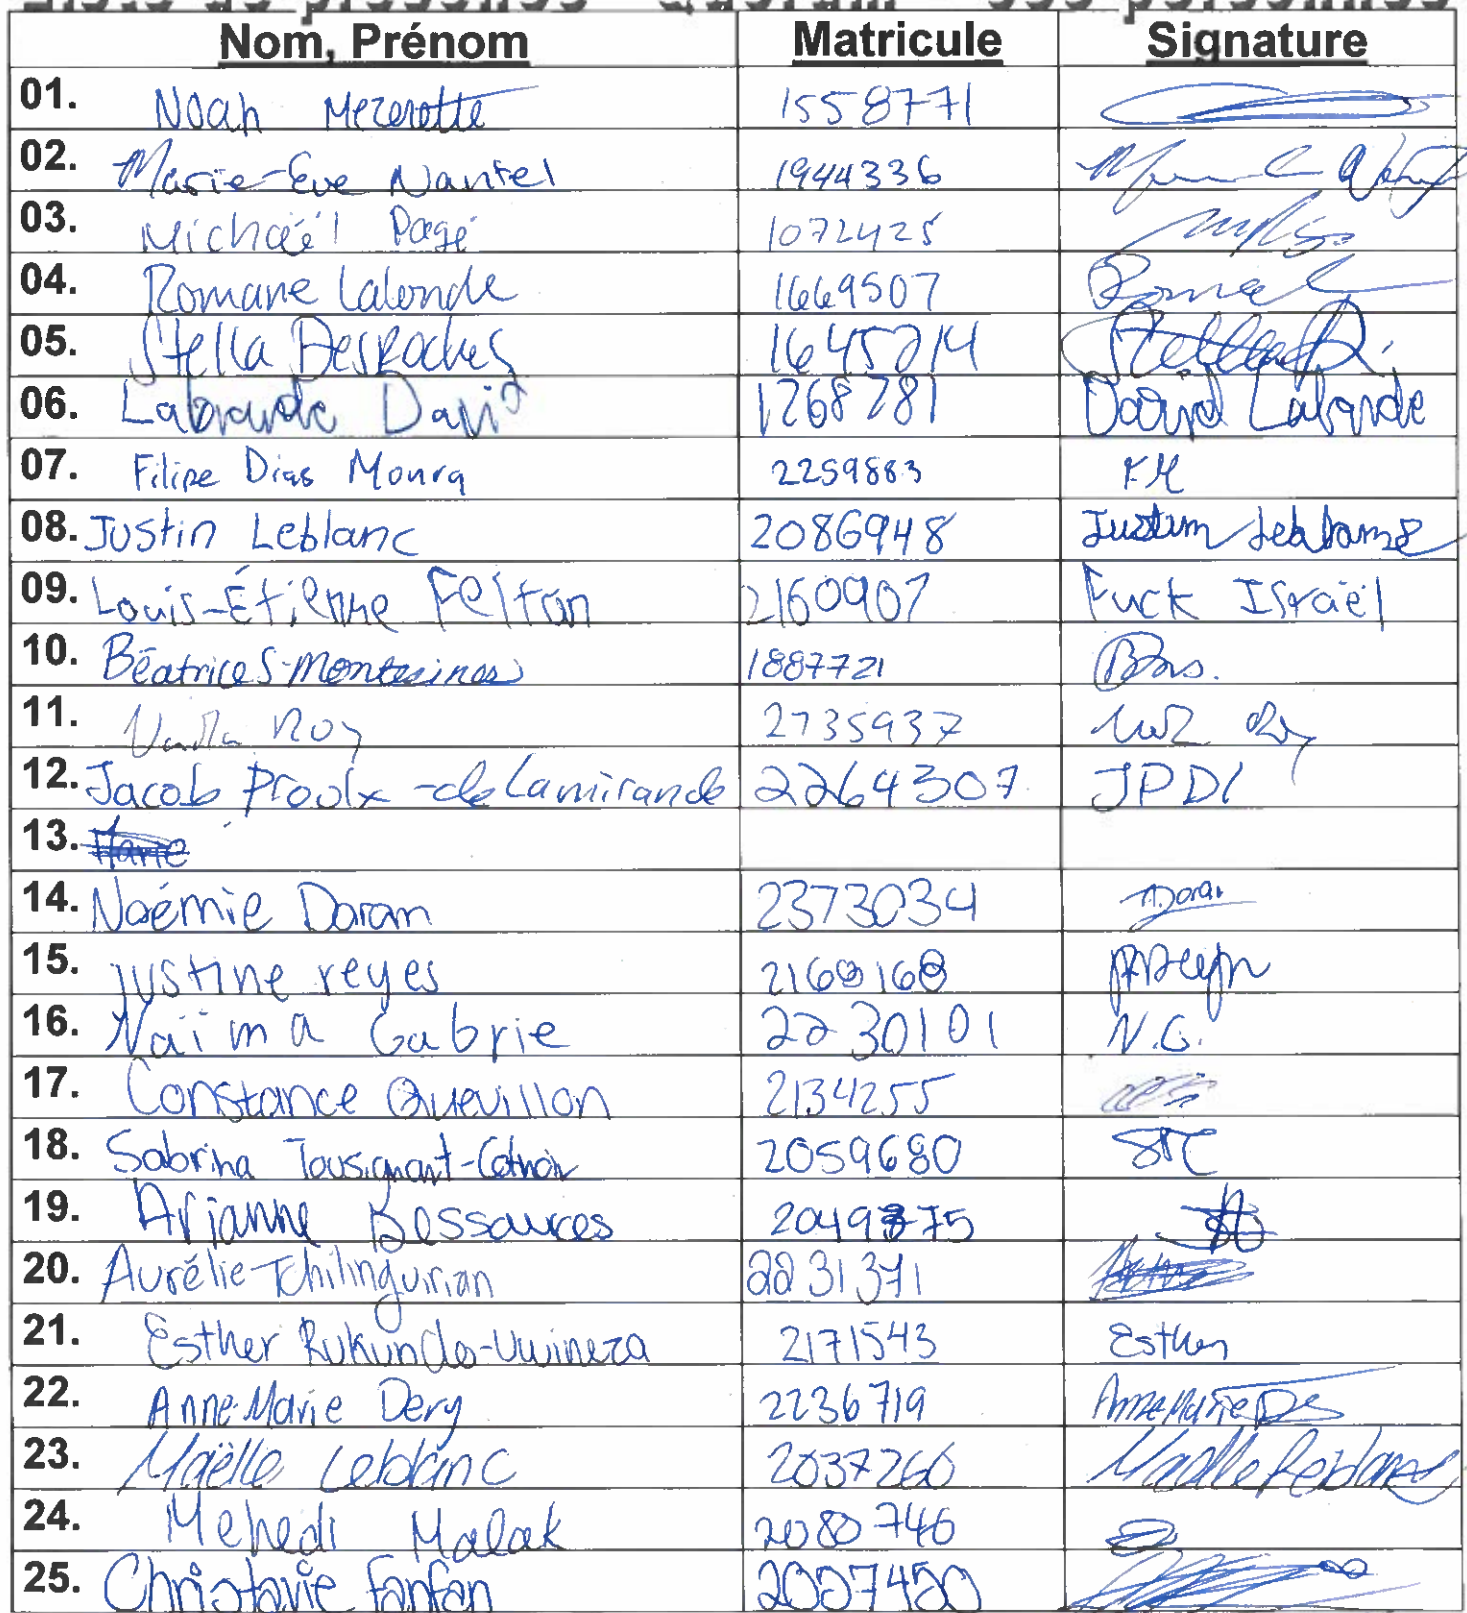 Liste de présence - Quorum - personnes
Nom, Prénom Matricule Signature
01. Noah Mezerette 1558771
02. Marie-Eve Nantel 1944336
03. Michaël Pagé 1072425
04. Romane Lalonde 1669507
05. Stella DesRoches 1645714
06. Labrande David 1268781 David Labrande
07. Filipe Dias Moura 2259883 FM
08. Justin Leblanc 2086948 Justin Leblanc
09. Louis-Étienne Feltan 2160907 Fuck Israël
10. Béatrice S-Montesinos 1887721
11. Roy 2735937
12. Jacob Proulx-de Lamirande 2264307 JPDL
13.
14. Noémie Doram 2373034
15. justine reyes 2168168
16. Naïma Gabrie 2230101 N.G.
17. Constance Quevillon 2134255
18. Sabrina Tousignant-Cotnoir 2059680 STC
19. Arianne Dessources 2049375
20. Aurélie Tchilinguirian 2231371
21. Esther Rukundo-Uwineza 2171543 Esther
22. Anne-Marie Dery 2236719
23. Maëlle Leblanc 2037260 Maëlle Leblanc
24. Mehedi Malak 2080746
25. Christavie Fanfan 2007450